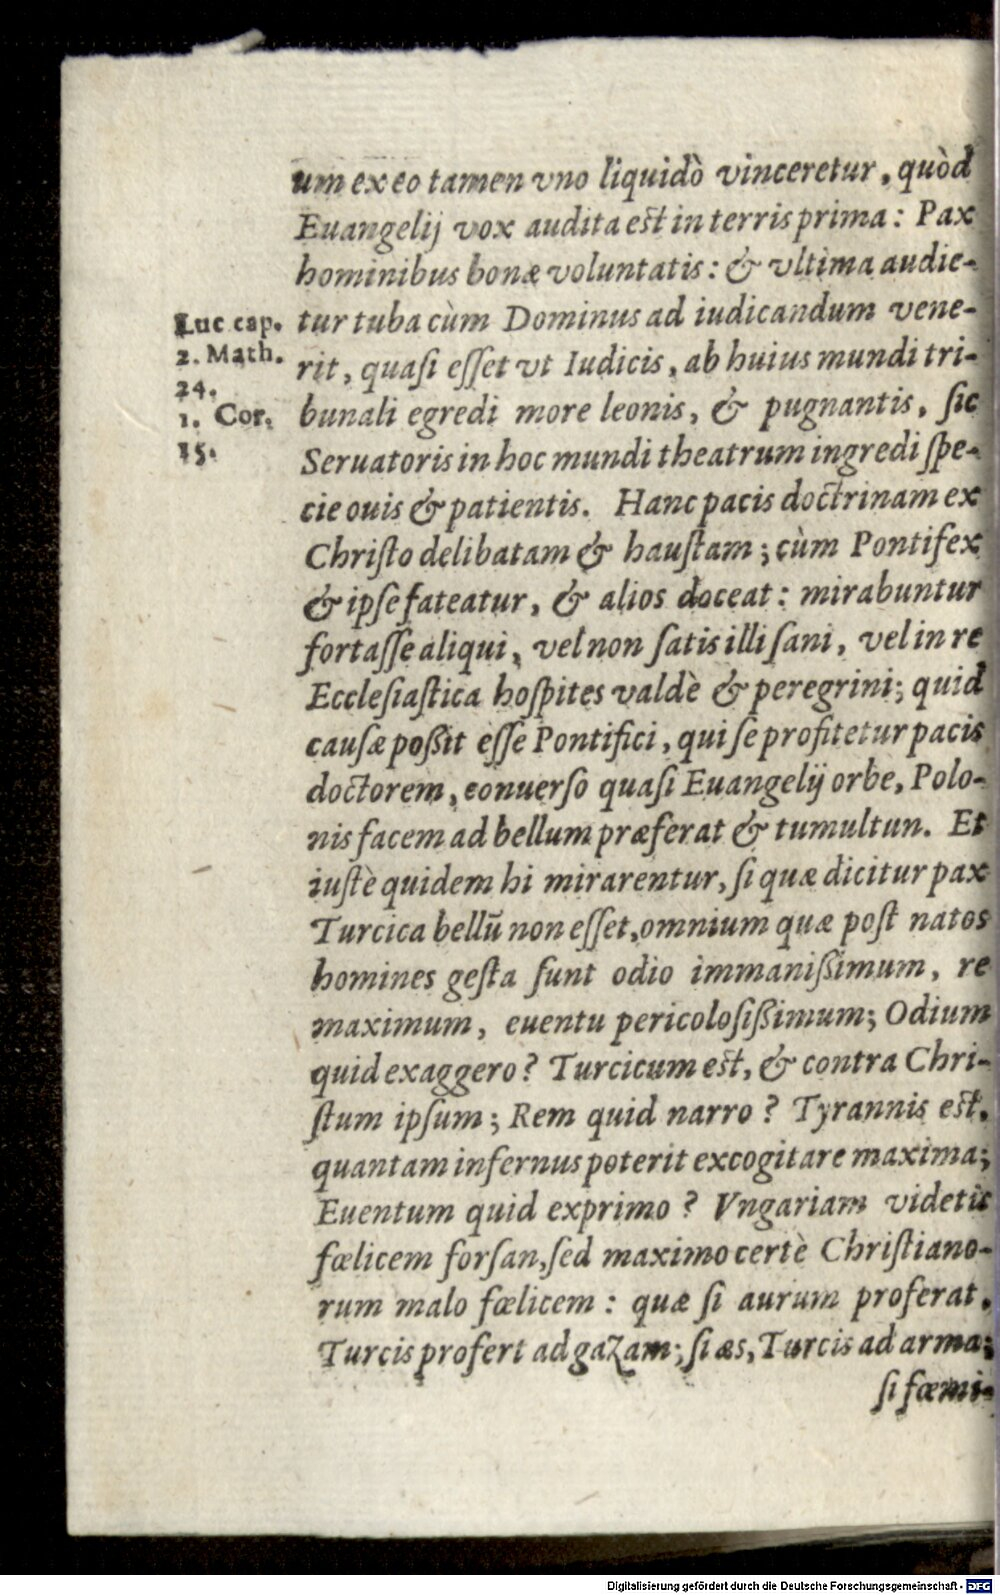 um ex eo tamen vno liquidò vinceretur, quòd
Euangelij vox audita est in terris prima: Pax
hominibus bonæ voluntatis: & vltima audie-
tur tuba cùm Dominus ad iudicandum vene-
rit, quaſi eſſet vt Iudicis, ab huius mundi tri-
bunali egredi more leonis, & pugnantis, ſic
Seruatoris in hoc mundi theatrum ingredi ſpe-
cie ouis & patientis. Hanc pacis doctrinam ex
Chriſto delibatam & hauſtam; cùm Pontifex
& ipſe fateatur, & alios doceat: mirabuntur
fortaſſe aliqui, vel non ſatis illi ſani, vel in re
Eccleſiaſtica hoſpites valdè & peregrini; quid
cauſæ poßit eſſe Pontifici, qui ſe profitetur pacis
doctorem, conuerſo quaſi Euangelij orbe, Polo-
nis facem ad bellum præferat & tumultun. Et
iuſtè quidem hi mirarentur, ſi quæ dicitur pax
Turcica bellū non eſſet, omnium quæ poſt natos
homines geſta ſunt odio immanißimum, re
maximum, euentu pericoloſißimum; Odium
quid exaggero? Turcicum est, & contra Chri-
ſtum ipſum; Rem quid narro? Tyrannis est,
quantam infernus poterit excogitare maxima;
Euentum quid exprimo? Vngariam videtis
fœlicem forſan, ſed maximo certè Chriſtiano-
rum malo fœlicem: quæ ſi aurum proferat,
Turcis profert ad gazam; ſi æs, Turcis ad arma;
ſi fœmi-
Luc cap.
2. Math.
24.
1. Cor.
15.
Digitalisierung gefördert durch die Deutsche Forschungsgemeinschaft - DFG